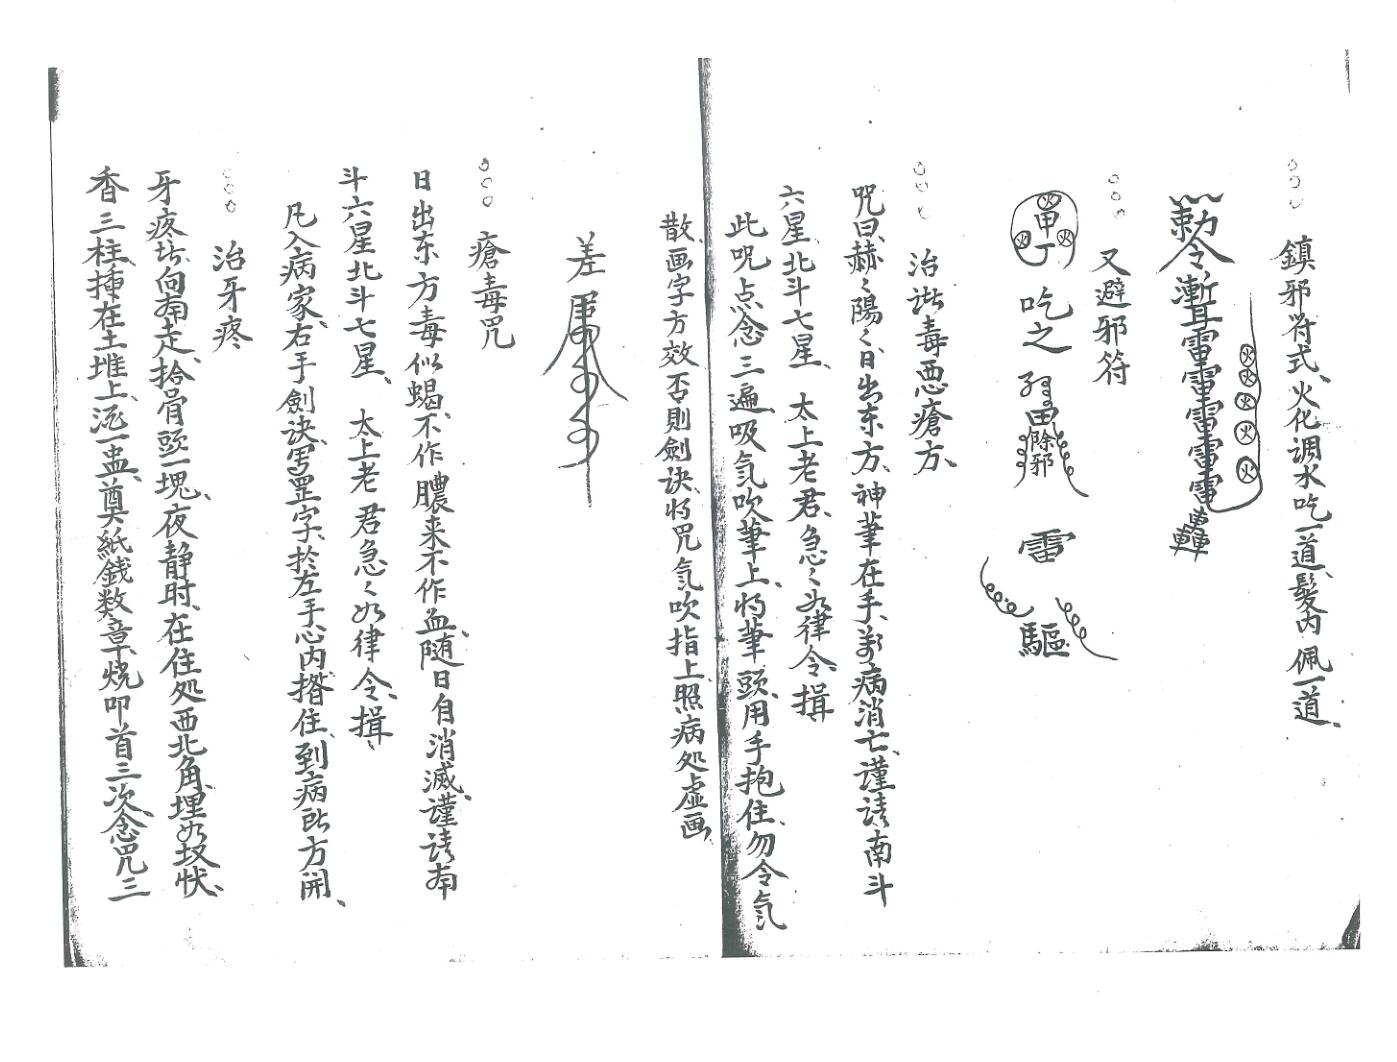 鎮邪符式、火化调水吃一道、髮内佩一道、
勅令漸耳雷雷雷雷雷轟
火火火火火
又避邪符
火甲丁火火
吃之
田除邪
雷
驅
治諸毒恶瘡方、
咒曰、赫々陽々、日出东方、神筆在手、萬病消亡、謹請南斗
六星、北斗七星、太上老君、急々如律令、揖
此咒点念三遍、吸気吹筆上、将筆頭用手抱住、勿令気
散、画字方效、否則劍诀、将咒気吹指上、照病処虚画、
差
瘡毒咒
日出东方毒似蝎、不作膿来不作血、随日自消滅、謹請南
斗六星北斗七星、太上老君急々如律令、揖
凡入病家、右手劍诀、写罡字、於左手心内、揝住、到病所方開、
治牙疼
牙疼者、向南走、拾骨頭一塊、夜静时、在住处西北角、埋如坟状、
香三柱、揷在土堆上、酒一盅、奠紙銭数章、烧叩首三次、念咒三